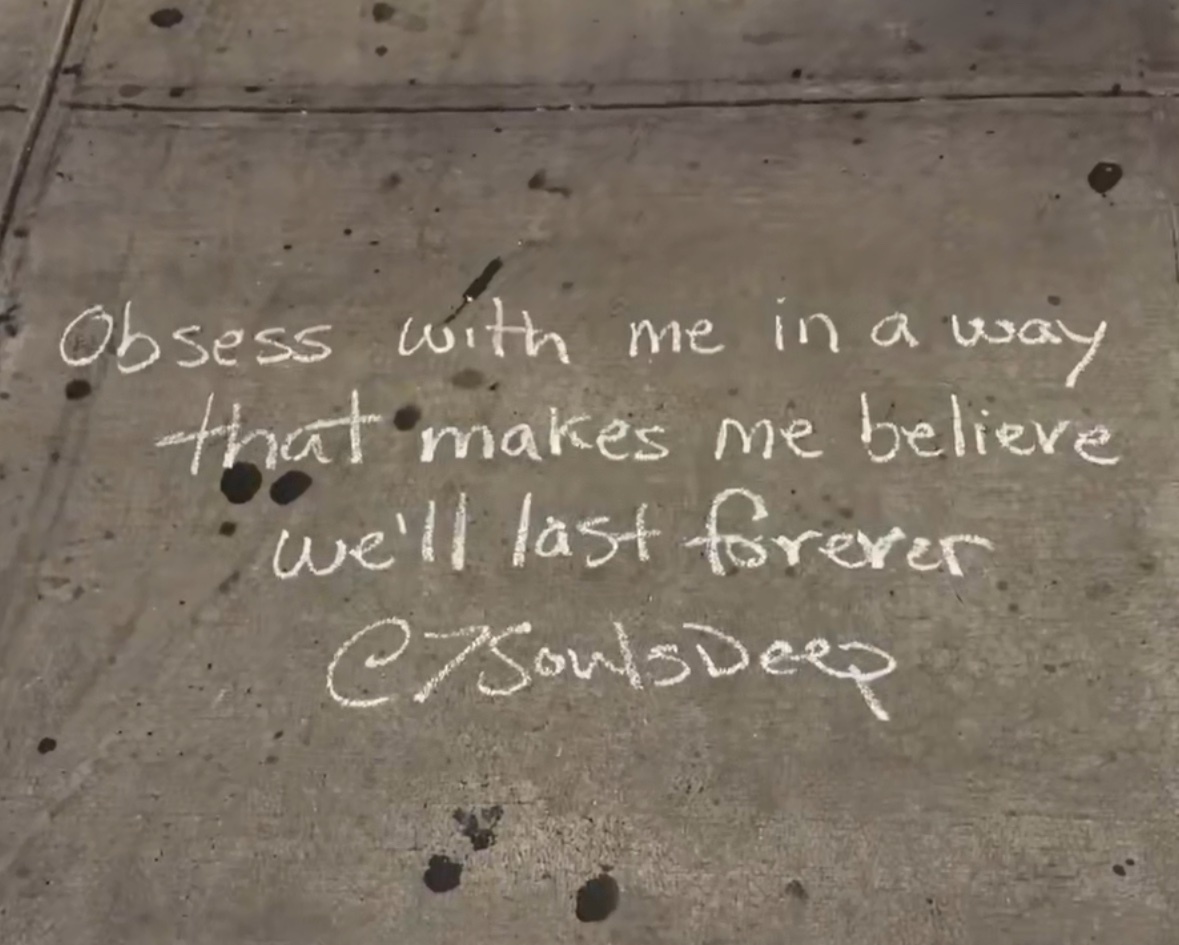 Obsess with me in a way
that makes me believe
we'll last forever
@7SoulsDeep